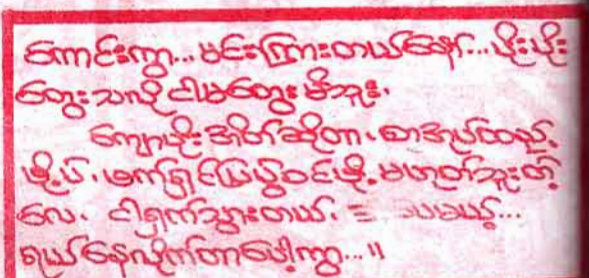 ကောင်းကွာ... မင်းကြားတယ်နော်... ပိုးပိုး
တွေးသလို ငါမတွေးမိဘူး.
ကျောပိုးအိတ်ဆိုတာ. စာအုပ်ထည့်
ဖို့ပဲ. ဖက်ရှင်ပြေပွဲဝင်ဖို့. မဟုတ်ဘူးတဲ့
လေ. ငါရှက်သွားတယ်. ဒါပေမယ့်...
ရယ်နေလိုက်တာပေါ့ကွာ... ။